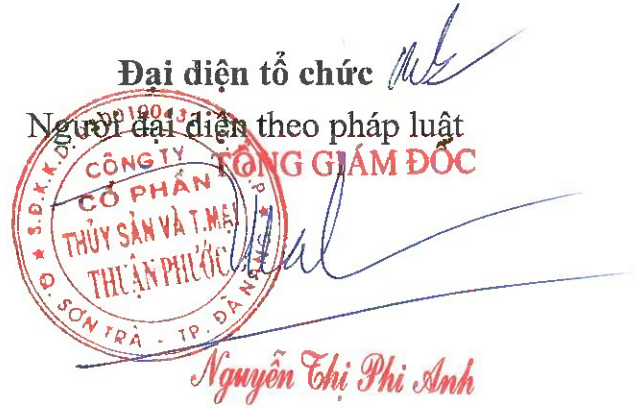 Đại diện tổ chức
Người đại diện theo pháp luật
TỔNG GIÁM ĐỐC
CÔNG TY
CỔ PHẦN
THỦY SẢN VÀ T.MẠI
THUẬN PHƯỚC
Q. SƠN TRÀ - TP. ĐÀ NẴNG
Nguyễn Thị Phi Anh